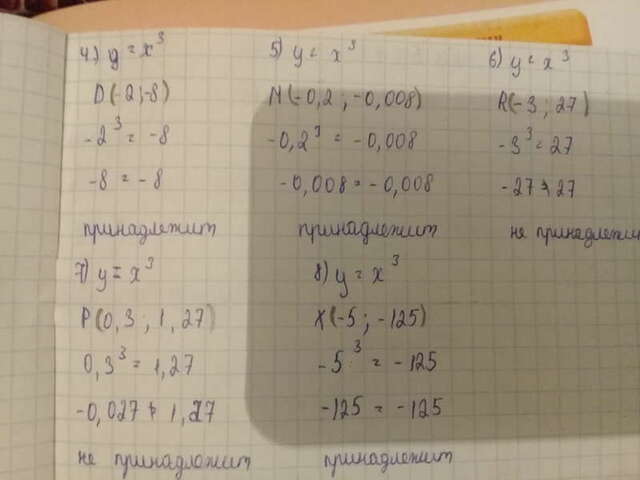 4) y = x³
D(-2;-8)
-2³ = -8
-8 = -8
принадлежит
5) y = x³
N(-0,2 ; -0,008)
-0,2³ = -0,008
-0,008 = -0,008
принадлежит
6) y = x³
R(-3; 27)
-3³ = 27
-27 ≠ 27
не принадлежи
7) y = x³
P(0,3 ; 1,27)
0,3³ = 1,27
-0,027 ≠ 1,27
не принадложит
8) y = x³
X(-5 ; -125)
-5³ = -125
-125 = -125
принадлежит